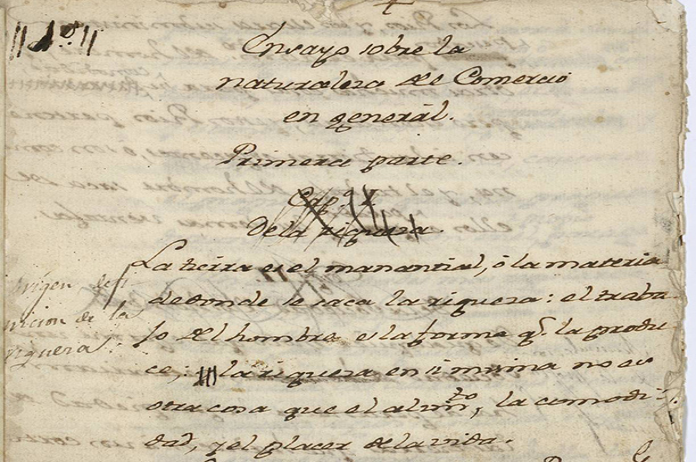 Ensayo sobre la
naturalera del Comercio
en generál.
Primerce parte.
Cap.º 1
De la riquera.
origen de
la
riqueras.
La tierra es el manantial, ó la materia
de donde se saca la riquera: el traba-
jo del hombre es la forme q.e la produ-
ce; la riquera en si misma no es
otra cosa que el alim.to, la comodi-
dad, y el placer de la vida.